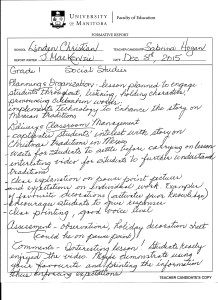 UNIVERSITY OF MANITOBA
Faculty of Education
FORMATIVE REPORT
SCHOOL Linden Christian TEACHER CANDIDATE Sabrina Hogen
REPORT WRITER J Mackenzie DATE Dec 8th, 2015
Grade 1 Social Studies
Planning & Organization - lesson planned to engage
students throughout, listening, holding
celebration
implements technology to enhance the story on
Mexican Traditions
Delivery & Classroom Management
- students' interest with story on
Christmas Traditions in Mexico
- waits for students to settle before carrying on lesson
- entertaining video for students to further understand
traditions
- clear explanation on power point picture
and expectations on individual work. Examples
of favourite decorations (activates prior knowledge)
- encourages students to give responses
- clear printing, good voice level
Assessment - observations, holiday decoration sheet
(could be on power point)
Comments - Interesting lesson! Students really
enjoyed the video.
your and printing the information
expectations
TEACHER CANDIDATE'S COPY